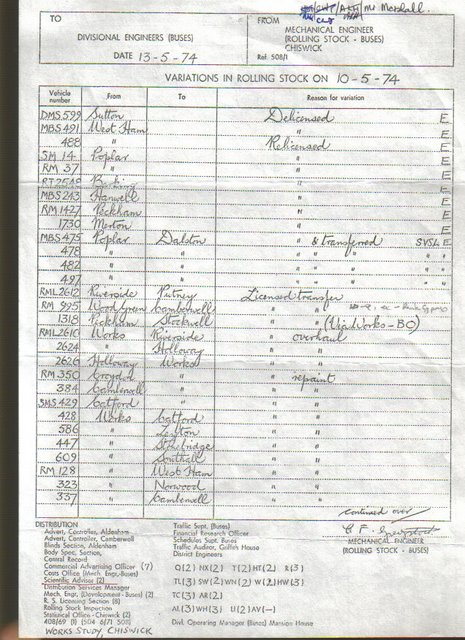 Mr Marshall.
TO
DIVISIONAL ENGINEERS (BUSES)
DATE 13-5-74
FROM
MECHANICAL ENGINEER
(ROLLING STOCK - BUSES)
CHISWICK
Ref. 508/1
VARIATIONS IN ROLLING STOCK ON 10-5-74
Vehicle number From To Reason for variation
DMS 599 Sutton Delicensed E
MBS 491 West Ham " E
488 " Relicensed E
SM 14 Poplar " E
RM 37 " " E
RT 2542 " E
MBS 243 Hanwell " E
RM 1427 Peckham " E
1730 Merton " E
MBS 475 Poplar Dalston " & transferred SVSL E
478 " " " " " " "
482 " " " " " " "
497 " " " " " " "
RML 2612 Riverside Putney Licensed transfer
RM 995 Wood Green Camberwell " "
1318 Peckham Stockwell " " (Via Works - BO)
RML 2610 Works Riverside " overhaul
2624 " Holloway " "
2626 Holloway Works " "
RM 350 Croydon " " repaint
384 Camberwell " " "
SMS 429 Catford " " "
428 Works Catford " "
586 " Leyton " "
447 " Stonebridge " "
609 " Southall " "
RM 128 " West Ham " "
323 " Norwood " "
337 " Camberwell " "
continued over
MECHANICAL ENGINEER
(ROLLING STOCK - BUSES)
DISTRIBUTION
Advert, Controller, Aldenham
Advert, Controller, Camberwell
Blinds Section, Aldenham
Body Spec, Section,
Central Record
Commercial Advertising Officer (7)
Costs Office (Mech. Engs-Buses)
Scientific Adviser (2)
Distribution Services Manager
Mech. Engr, (Development - Buses) (2)
R. S. Licensing Section (8)
Rolling Stock Inspection
Statistical Office - Chiswick (2)
408/69 (1) 504 (6/71 508)
WORKS STUDY, CHISWICK
Traffic Supt. (Buses)
Financial Research Officer
Schedules Supt. Buses
Traffic Auditor, Griffith House
District Engineers
Q(2) NX(2) T(2) HT(2) R(3)
TL(3) SW(2) WN(2) W(2) HW(3)
TC(3) AR(2)
AL(3) WH(3) U(2) AV(-)
Divl. Operating Manager (Buses) Mansion House